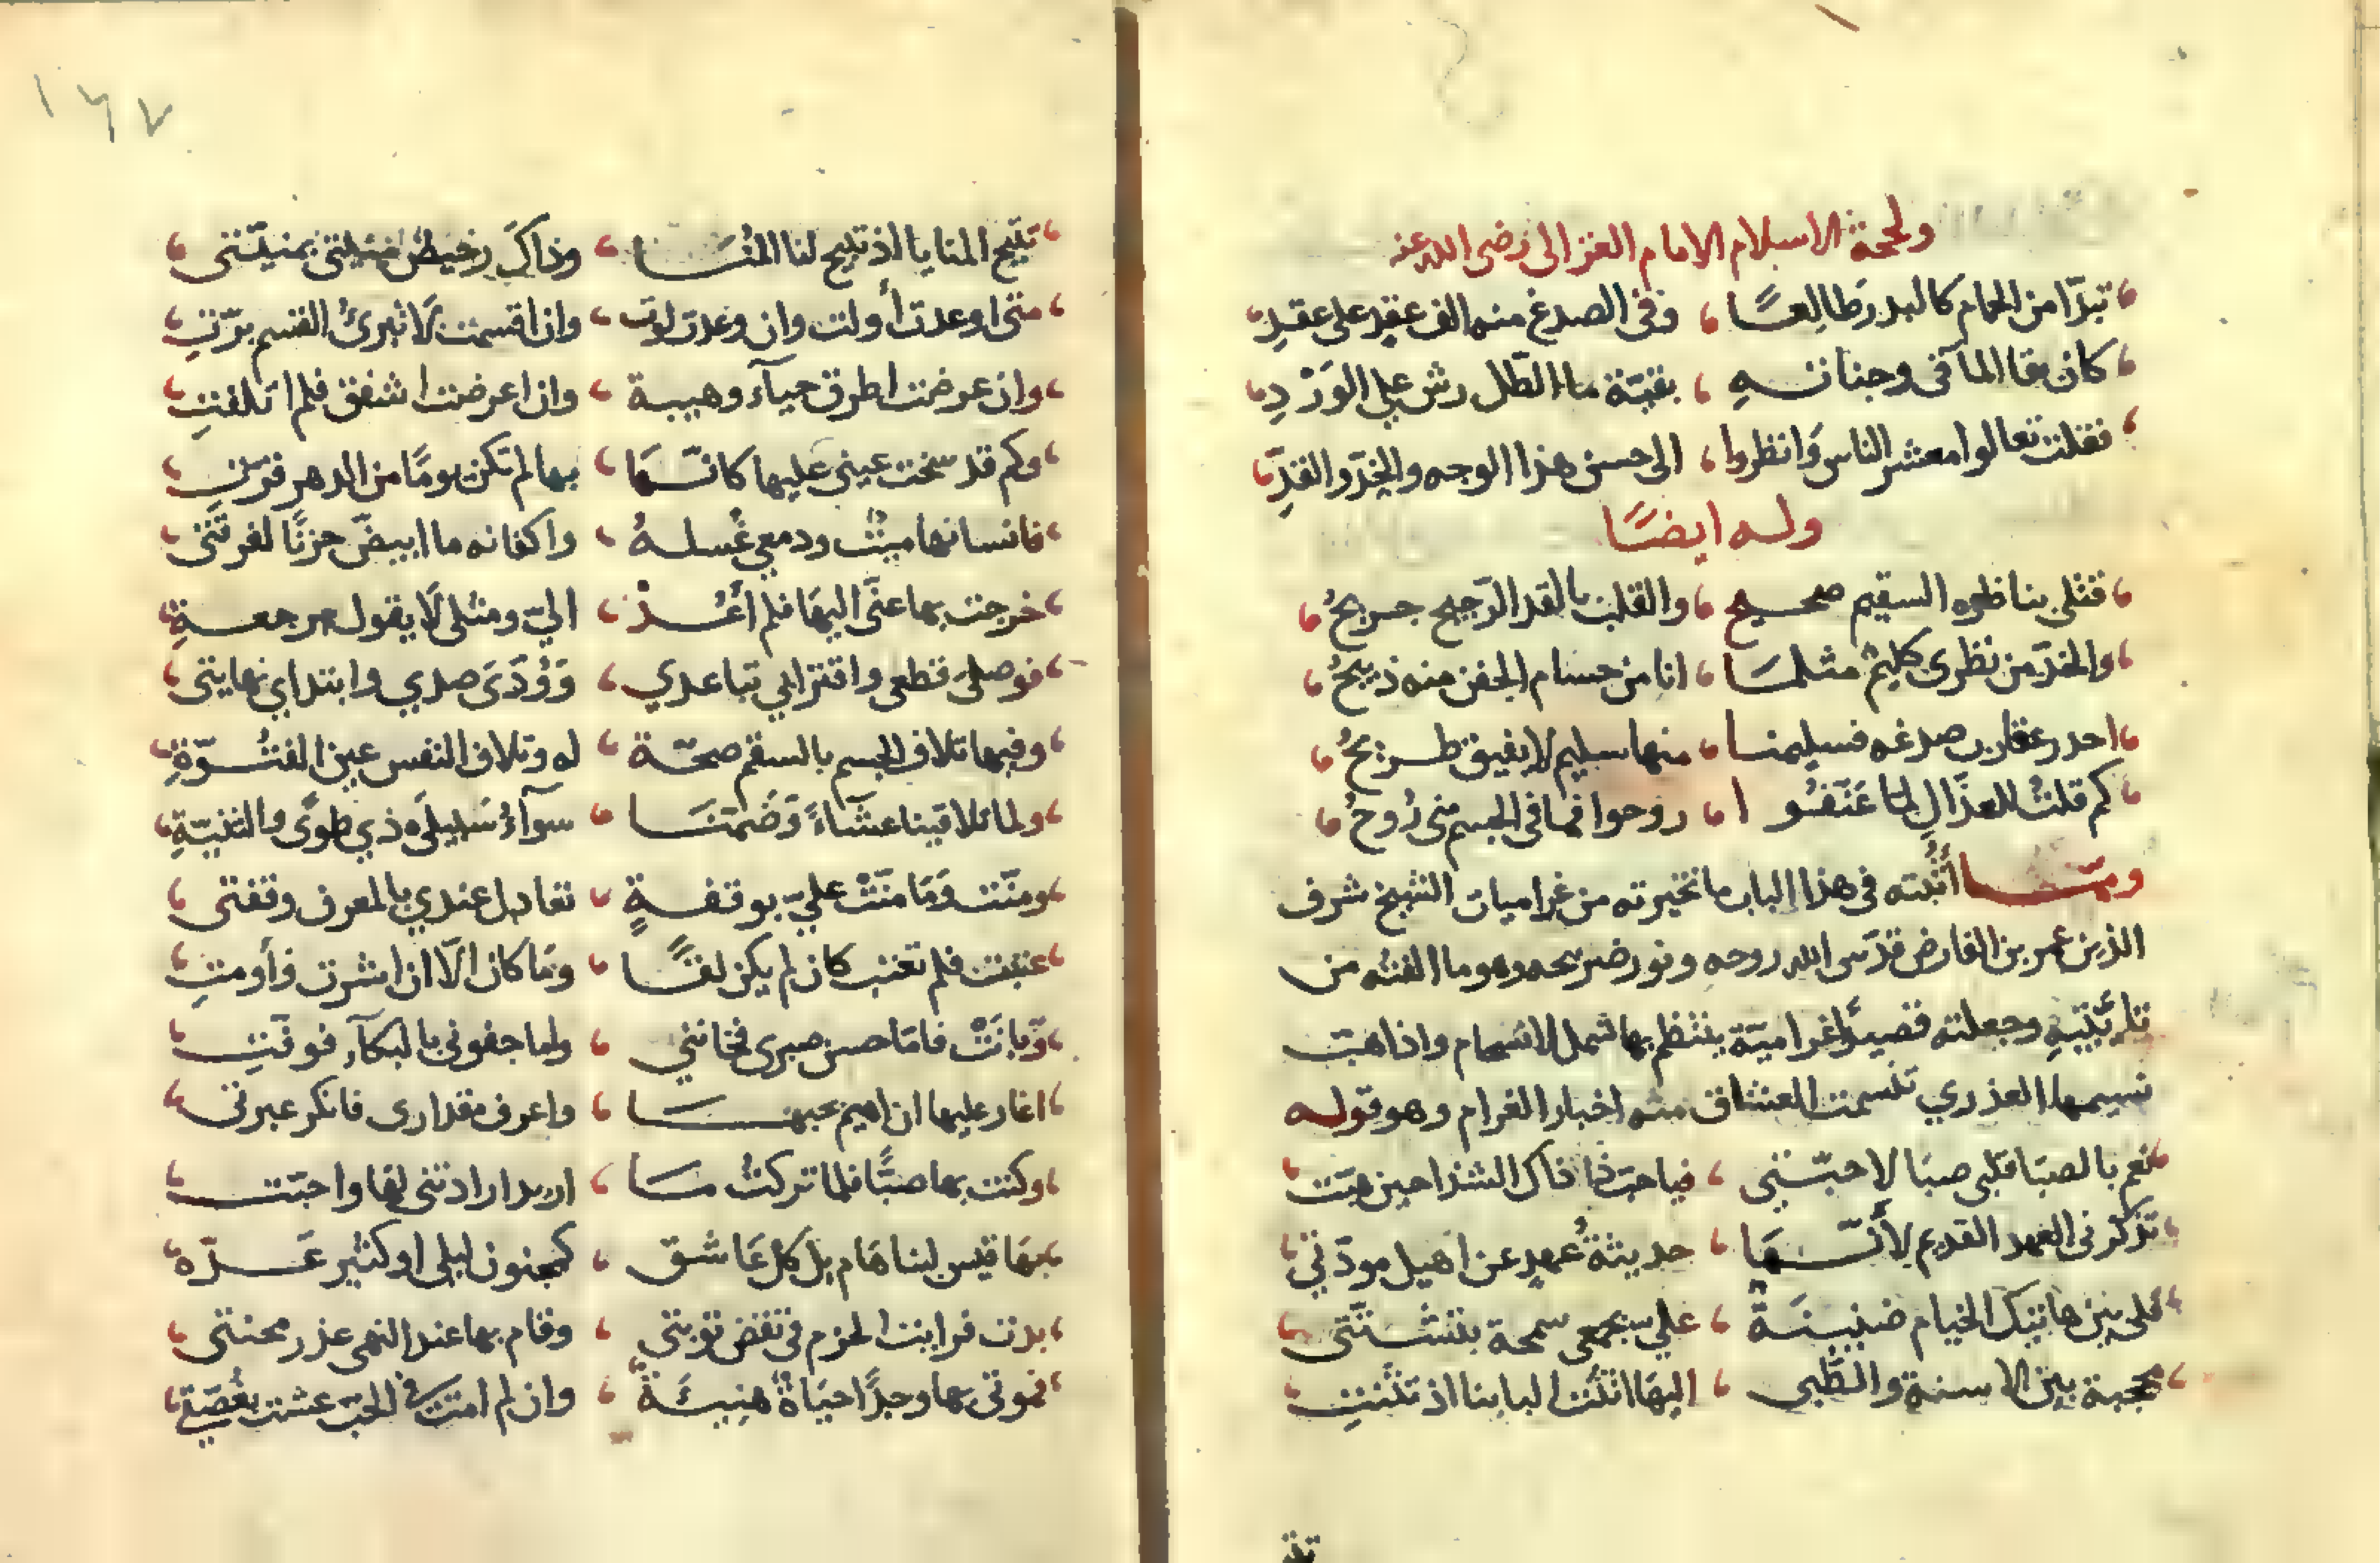 ولحجة الاسلام الامام الغزالى رضى الله عنه
تبدّا من الحمام كالبدر طالعًا ، وفى الصدغ منه الف عقدٍ على عقدِ
كان بقا المآ فى وجناتهِ ، بقيّة ماا الطّل رش على الوَرْدِ
فقلت تعالوا معشر الناس وَانظروا ، الى حسن هذا الوجه والخدّ والقدِّ
وله ايضًا
قتلى بناظره السقيم صحيح ، والقلب بالقد الرّجيح جريحُ
والخدّ من نظرى كليمٌ مثلمَا ، انا من حسام الجفن منه ذبيحُ
احدر عقارب صدغه فسليمنا ، منها سليم لا يفيق طريحُ
كم قلتُ للعذّالِ لمّا عَنّفُوا ، روحوا فما فى الجسم منى رُوحُ
وممّا أثبته فى هذا الباب ما تخيرته من غراميات الشيخ شرف
الدين عمر بن الفارض قدّس الله روحه ونور ضريحه وهو ما الفته من
تآئيّتيهِ وجعلته قصيدًا غراميّة ينتظم بها شمل الافهام واذا هبّت
نسيمها العذري تنسمت العشاق منه اخبار الغرام وهو قوله
نعم بالصبَا قلبى صبَا لاحبّتى ، فياحبّذا ذاك الشذا حين هبّت
تذكرنى العهد القديم لأنّهَا ، حديثةُ عهدٍ عن اهيل مودّتي
فلى بين هاتيك الخيام ضنينَةٌ ، علي بجمعى سمحة بتشتّتى
محجبة بين الاسنة والظّبى ، اليهَا انثنت البابنا اذ تثنّتِ
تتيح المنايا اذ تبيح لنا المُنَا ، وذاك رخيصٌ منيتى بمنيّتى
متى اوعدت أولت وان وعدت لوت ، وان اقسمت لَا تبرئُ القسم برّتِ
وان عرضت اطرق حيآء وهيبة ، وان اعرضت اشفق فلم اتلفتِ
وكم قد سخت عينى عليها كانّهَا ، بها لم تكن يومًا من الدهر قرّتِ
فانسانها ميتٌ ودمعي غُسلهُ ، واكفانه ما ابيضّ حزنًا لفرقتى
خرجت بها عنّى اليهَا فلم أعُدْ ، اليّ ومثلى لَا يقول برجعةِ
فوصلى قطعى واقترابي تباعدي ، وَوُدّىَ صدي وابتداي نهايتى
وفيها تلافى الجسم بالسقم صحّة ، له وتلاف النفس عين الفتُوّةِ
ولما تلاقينا عشَاءً وَضَمنَا ، سوآءُ سَبيلَى ذي طوًى والثنيّةِ
ومنّت وَمَا منّتْ عليّ بوقفةٍ ، تعادل عندي بالمعرف وقفتى
عتبت فلم تعتب كان لم يكن لقًا ، ومَا كان الّا ان اشرت وأومتِ
وَبانَتْ فامّا حسن صبرى فخانني ، واما جفونى بالبكآء فوفّتِ
اغار عليها ان اهيم بحبهَا ، واعرف مقدارى فانكر غيرتى
وكنت بها صبًّا فلما تركتُ مَا ، اريد ارادتنى لهَا واحبّت
بهَا قيس لبنا هَام بل كل عَاشق ، كمجنون ليلى او كثير عَزّه
بدت فرايت الحزم فى نقض توبتي ، وقام بها عند النهى عذر محنتى
فموتى بها وجدًا حيَاةٌ هنيئَةٌ ، وان لم امت فى الحبّ عشت بغُصّتِي